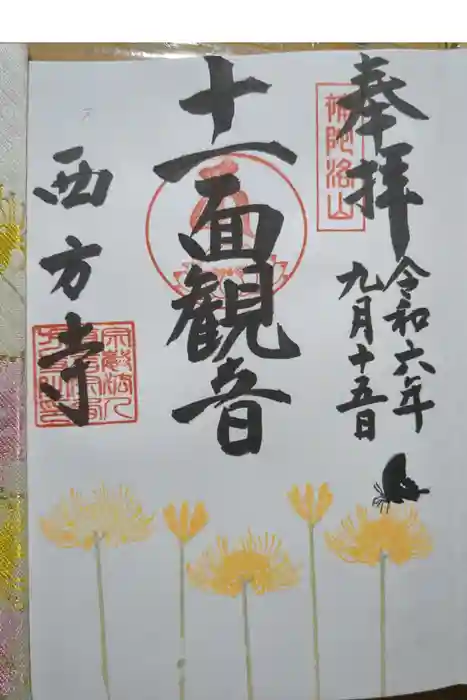 奉拝
令和六年
九月十五日
補陀洛山
十一面観音
西方寺